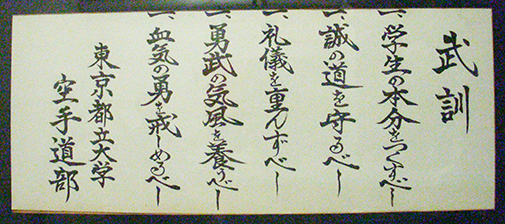 武訓
一、学生の本分をつくすべし
一、誠の道を守るべし
一、礼儀を重んずべし
一、勇武の気風を養うべし
一、血気の勇を戒しめるべし
東京都立大学
空手道部